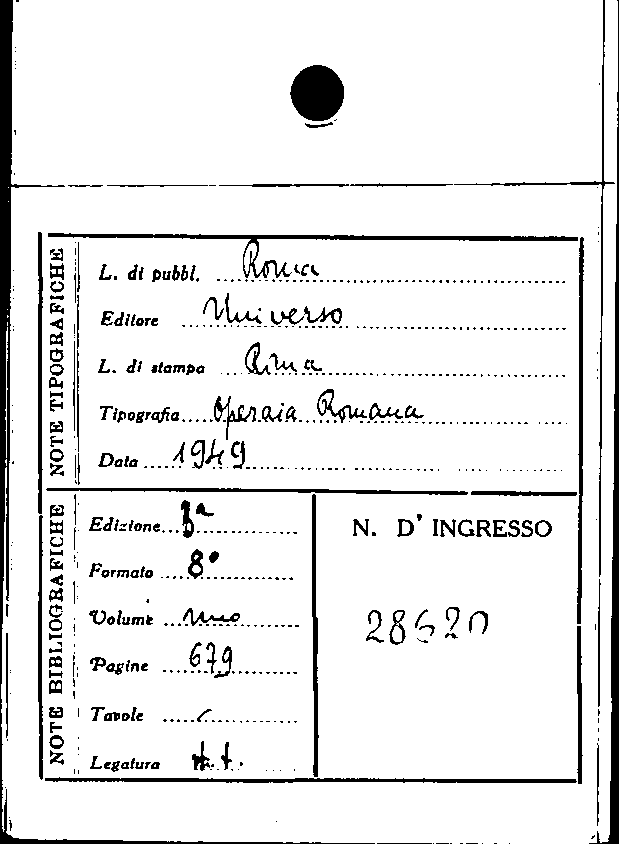 NOTE TIPOGRAFICHE
L. di pubbl. Roma
Editore Universo
L. di stampa Roma
Tipografia Operaia Romana
Data 1949
NOTE BIBLIOGRAFICHE
Edizione 3a
Formato 8°
Volume uno
Pagine 679
Tavole
Legatura
N. D' INGRESSO
28620